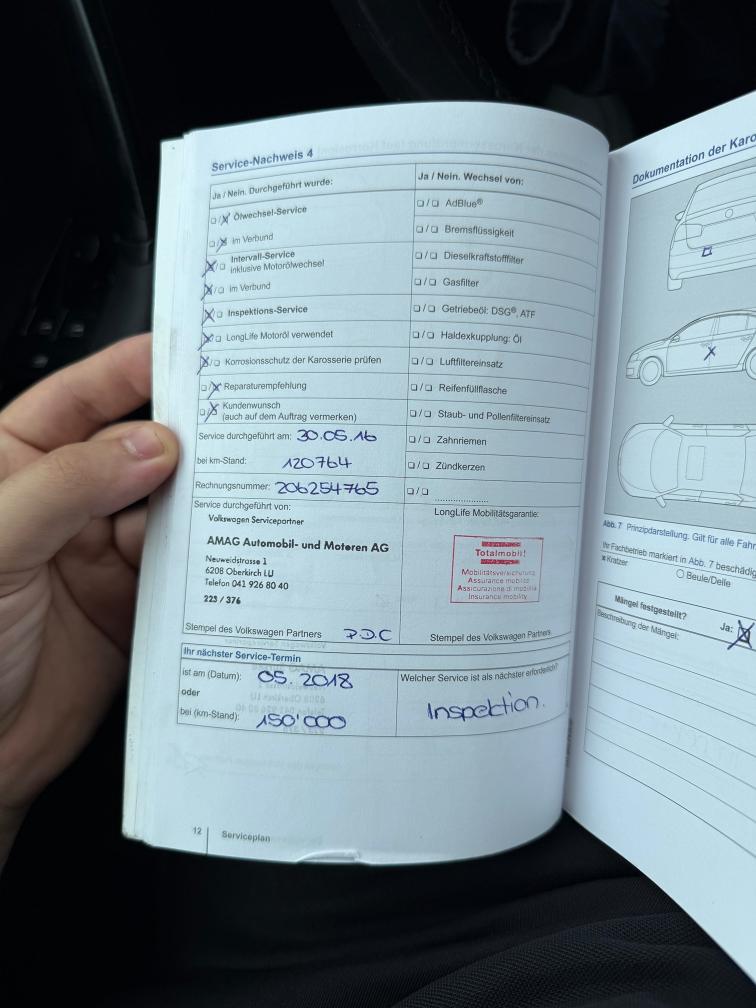 Service-Nachweis 4
Ja / Nein. Durchgeführt wurde:
❏/❏ Ölwechsel-Service
❏/❏ im Verbund
❏/❏ Intervall-Service
inklusive Motorölwechsel
❏/❏ im Verbund
❏/❏ Inspektions-Service
❏/❏ LongLife Motoröl verwendet
❏/❏ Korrosionsschutz der Karosserie prüfen
❏/❏ Reparaturempfehlung
❏/❏ Kundenwunsch
(auch auf dem Auftrag vermerken)
Service durchgeführt am: 30.05.16
bei km-Stand: 120764
Rechnungsnummer: 206254765
Service durchgeführt von:
Volkswagen Servicepartner
AMAG Automobil- und Motoren AG
Neuweidstrasse 1
6208 Oberkirch LU
Telefon 041 926 80 40
223 / 376
Stempel des Volkswagen Partners P.D.C
Ja / Nein. Wechsel von:
❏/❏ AdBlue®
❏/❏ Bremsflüssigkeit
❏/❏ Dieselkraftstofffilter
❏/❏ Gasfilter
❏/❏ Getriebeöl: DSG®, ATF
❏/❏ Haldexkupplung: Öl
❏/❏ Luftfiltereinsatz
❏/❏ Reifenfüllflasche
❏/❏ Staub- und Pollenfiltereinsatz
❏/❏ Zahnriemen
❏/❏ Zündkerzen
❏/❏ ......................
LongLife Mobilitätsgarantie:
Totalmobil!
Mobilitätsversicherung
Assurance mobilité
Assicurazione di mobilità
Insurance mobility
Stempel des Volkswagen Partners
Ihr nächster Service-Termin
ist am (Datum): 05. 2018
oder
bei (km-Stand): 150'000
Welcher Service ist als nächster erforderlich?
Inspektion.
12 Serviceplan
Dokumentation der
Abb. 7 Prinzipdarstellung. Gilt für alle
Ihr Fachbetrieb markiert in Abb. 7
x Kratzer
○ Beule/Delle
Mängel festgestellt? Ja:
Beschreibung der Mängel: